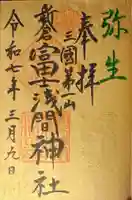 弥生
奉拝
三國第一山
新倉富士浅間神社
令和七年三月九日